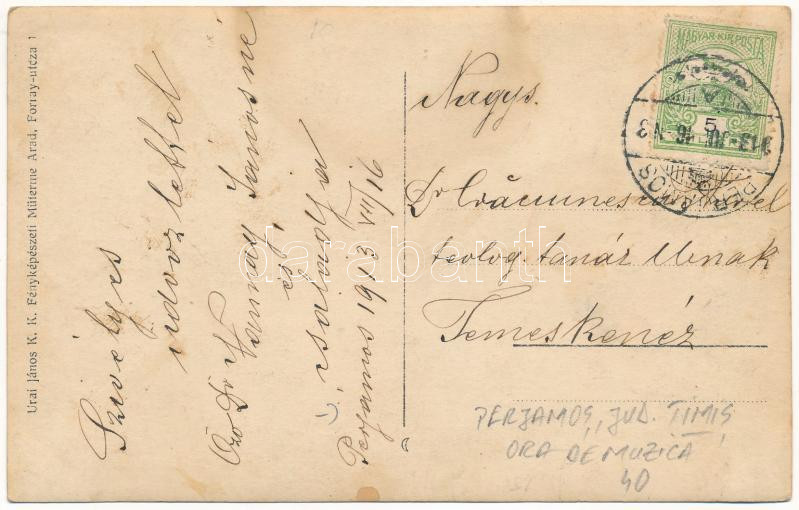 Urai János K. K. Fényképészeti Műterme Arad, Forray-utcza 1
Szivélyes
üdvözlettel
Özv Dr
Vannay Jánosné
és
családja
Perjámos 1913 VII/16
MAGYAR KIR. POSTA
5
913 JUL 16 N3
PERJÁMOS
Nagys.
Dr
teolog. tanár Urnak
Temeskenéz
PERJAMOȘ, JUD. TIMIȘ
ORA DE MUZICĂ
40
darabanth